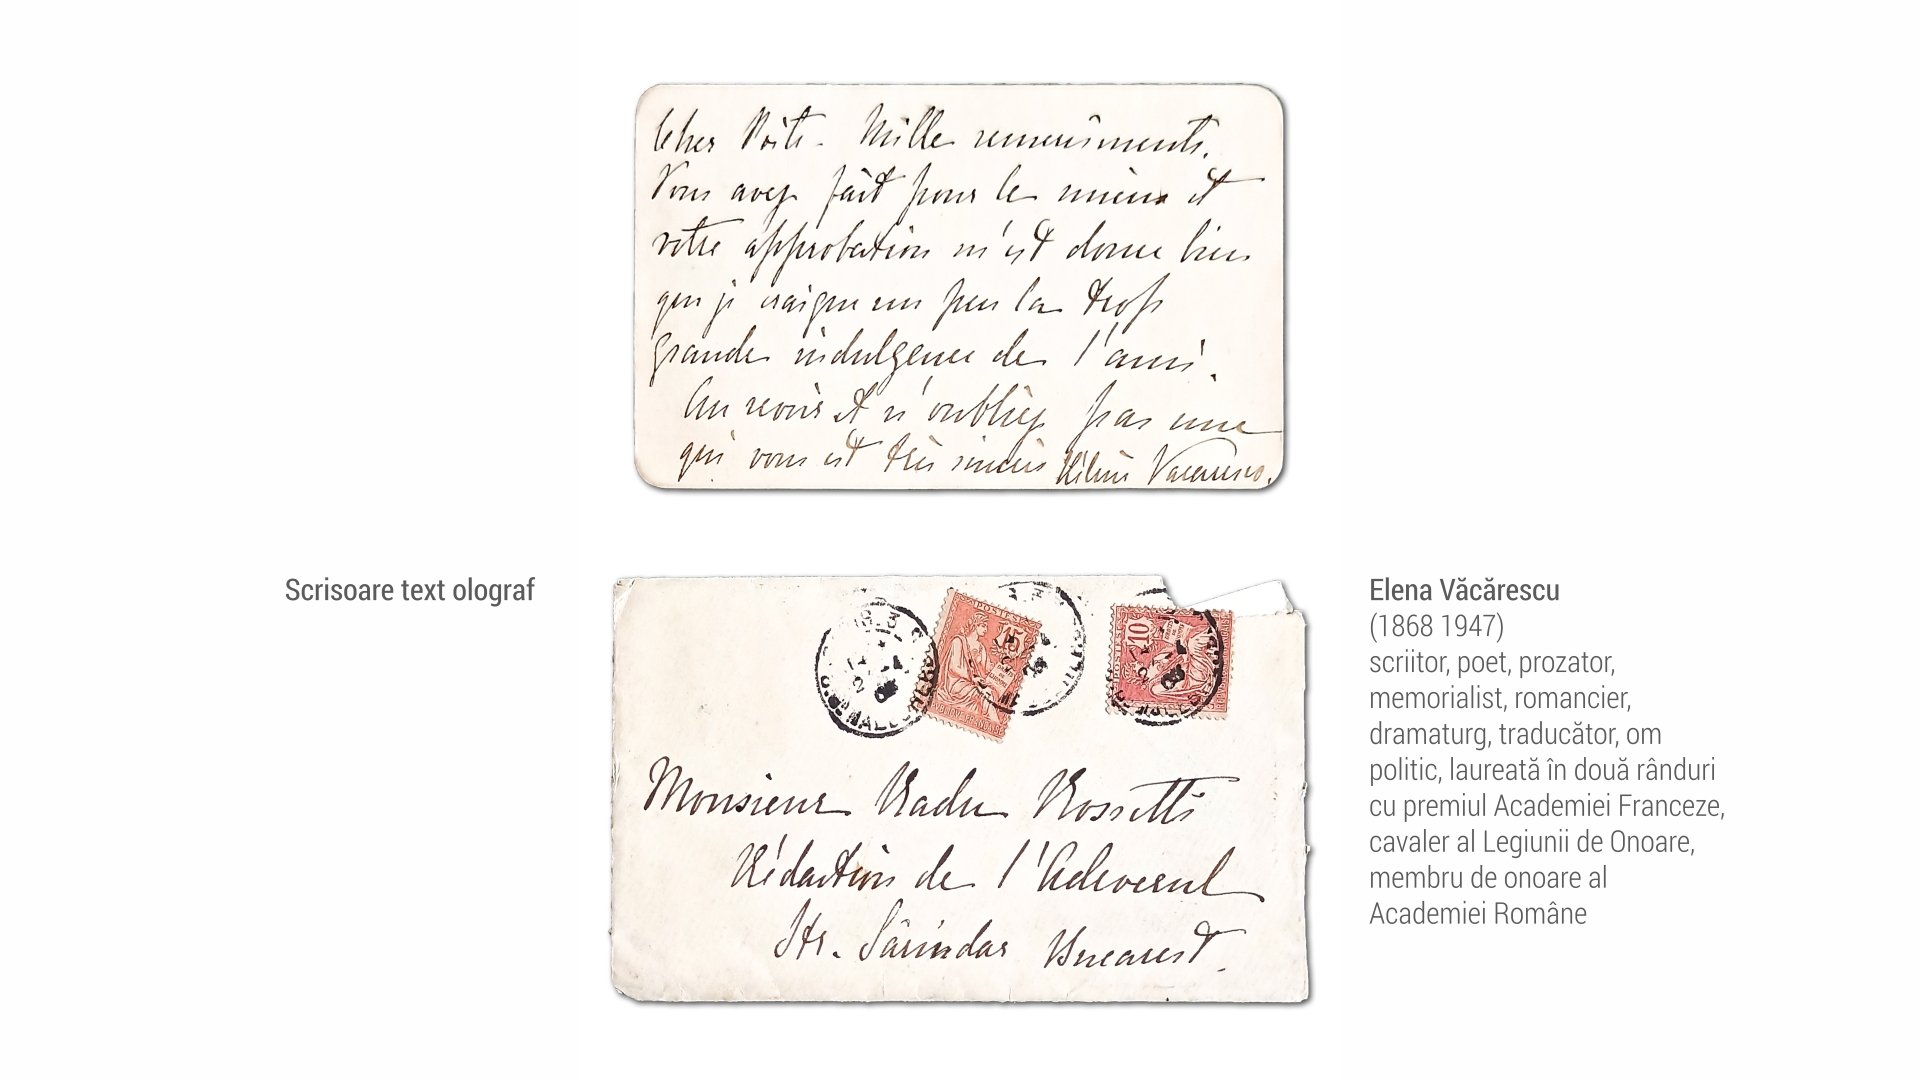 Cher Poète. Mille remerciments.
Vous avez fait pour le mieux et
votre approbation m'est douce bien
que je craigne un peu la trop
grande indulgence de l'ami.
Au revoir et n'oubliez pas une
qui vous est très sincère Hélène Vacaresco.
Scrisoare text olograf
POSTES
15
10
Monsieur Radu Rossetti
Rédaction de l'Adeverul
Str. Sărindar Bucarest.
Elena Văcărescu
(1868 1947)
scriitor, poet, prozator,
memorialist, romancier,
dramaturg, traducător, om
politic, laureată în două rânduri
cu premiul Academiei Franceze,
cavaler al Legiunii de Onoare,
membru de onoare al
Academiei Române